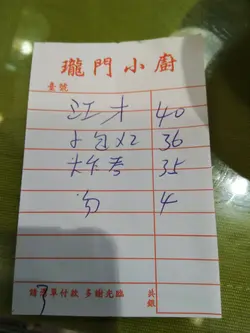 瓏門小廚
臺號
江才 40
卜包x2 36
炸卷 35
勾 4
7
請憑單付款 多謝光臨
共銀